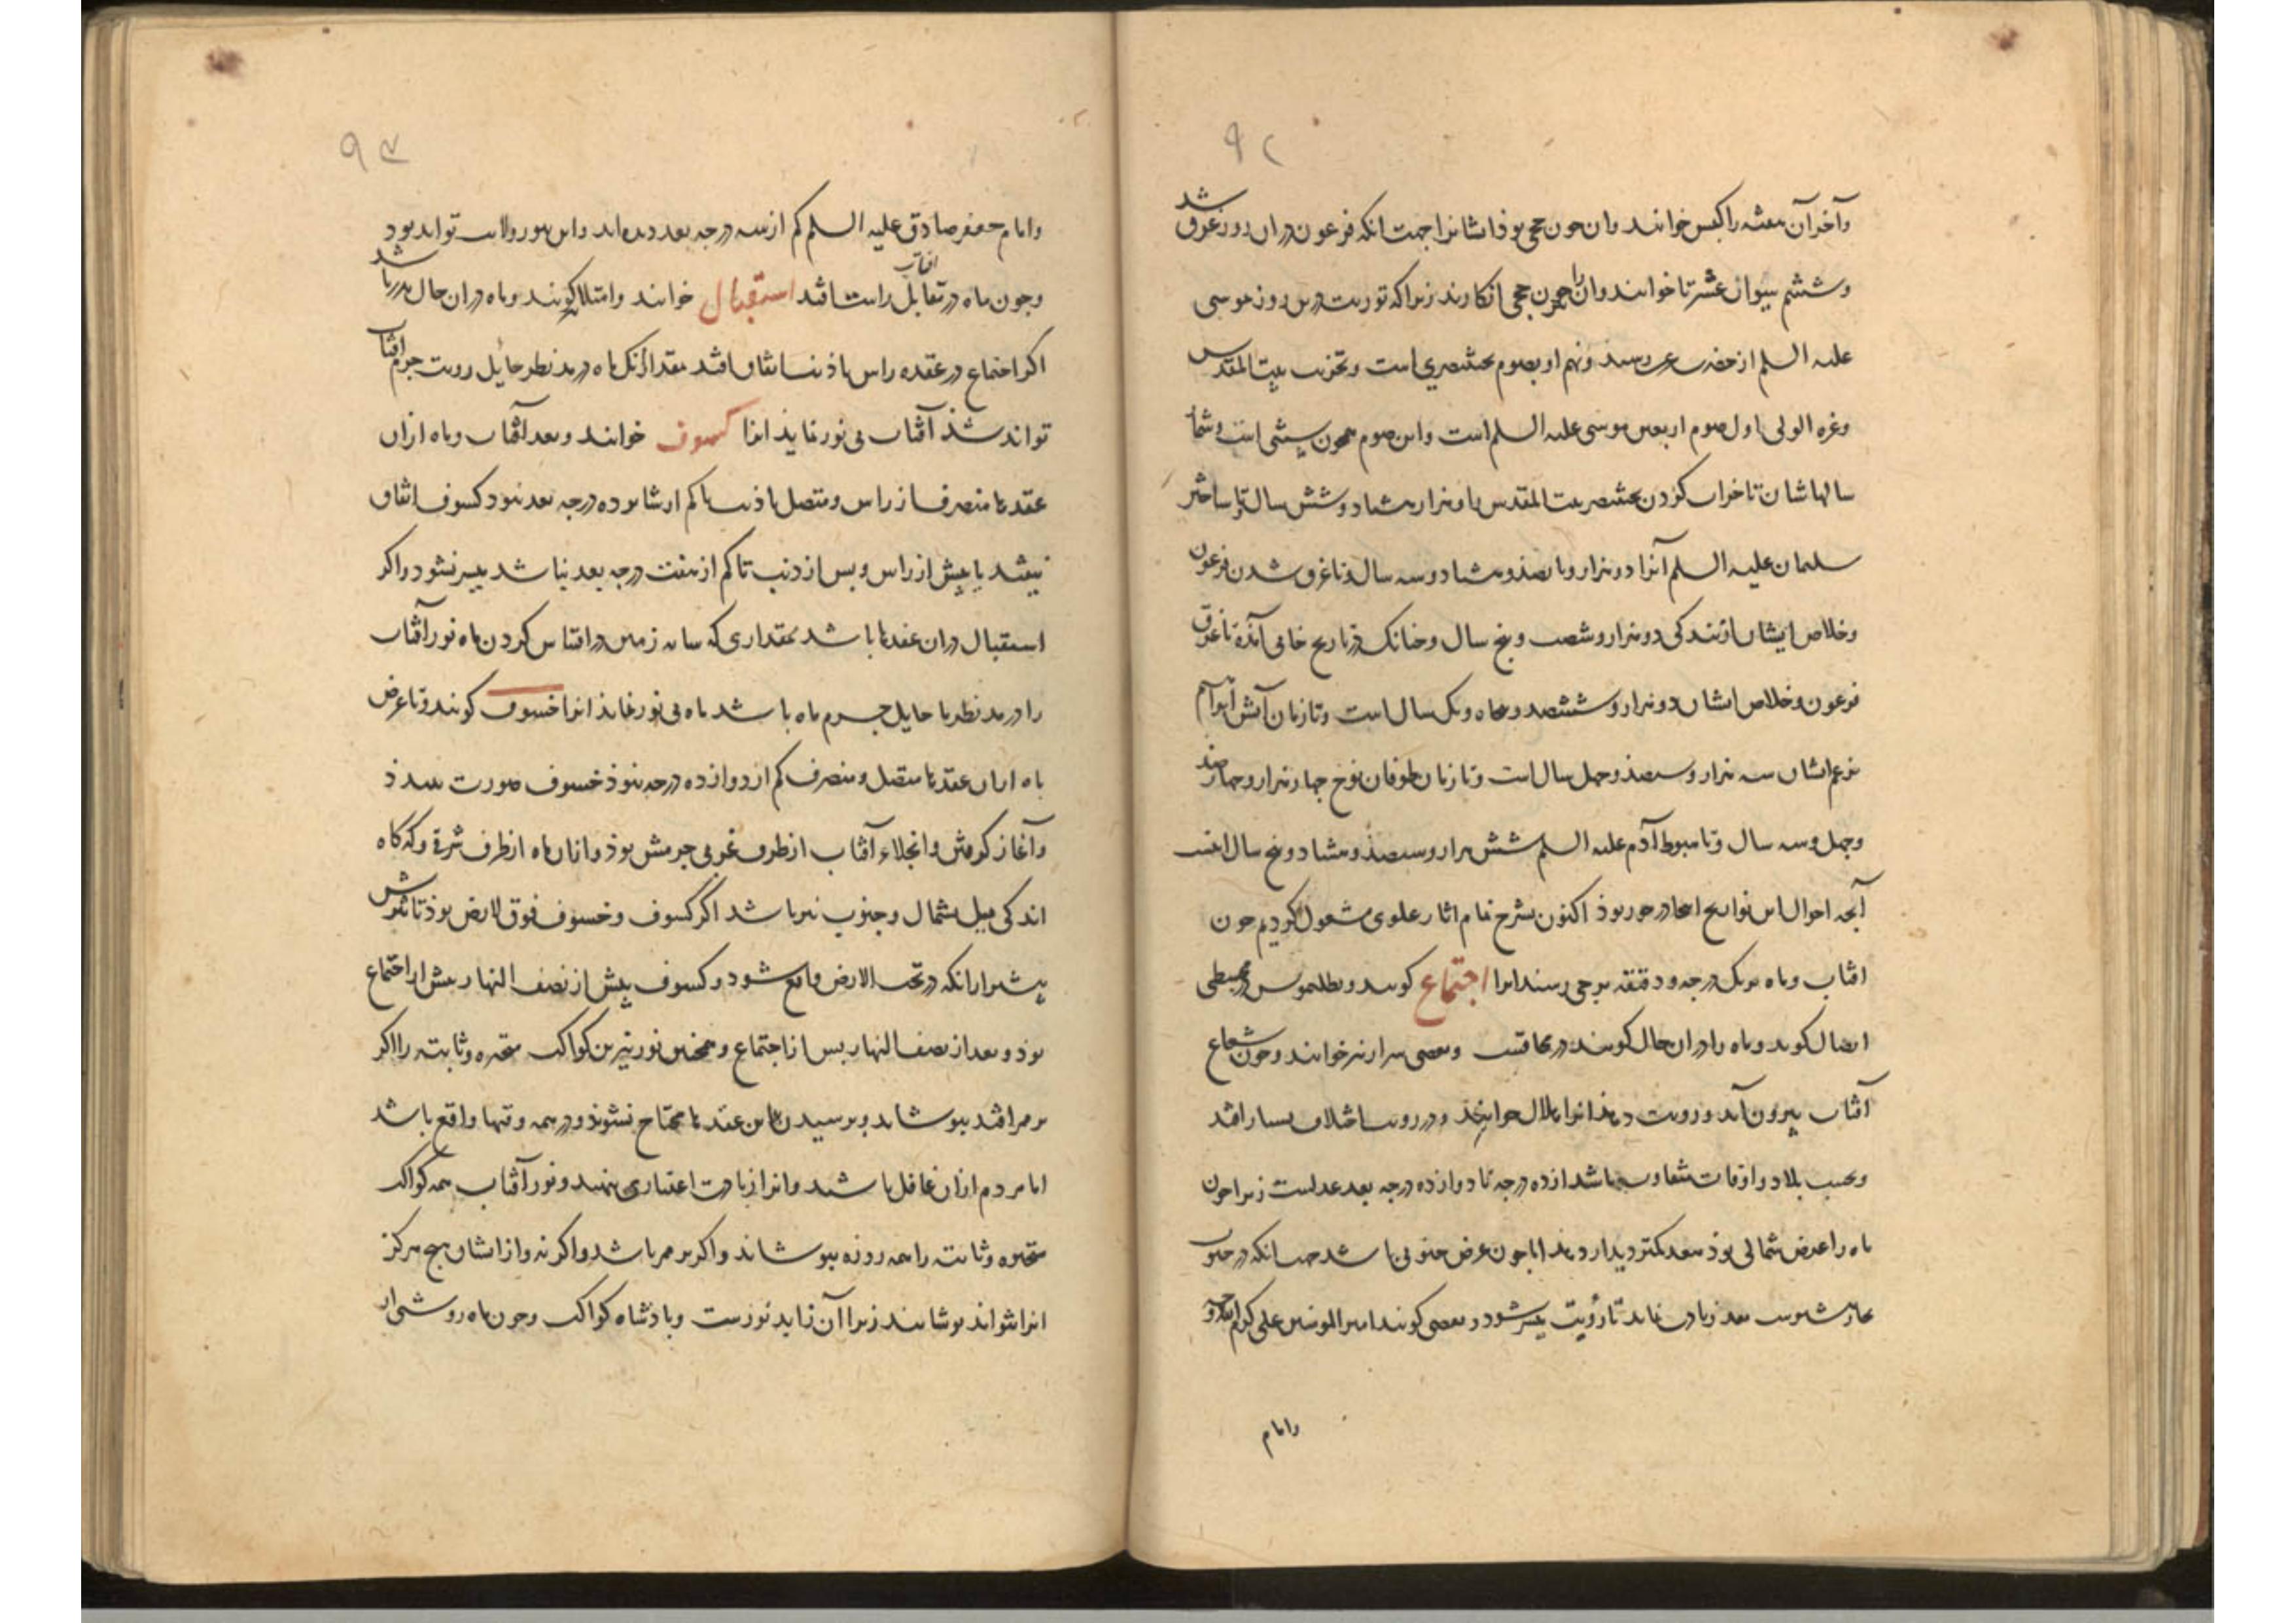 ۹۲
وآخر آن هفته را کبس خوانند وان جون حجی بوذ ایشانرا جهت انکه فرعون دران روز غرق شد
وششم سیوان عشرتا خوانند وانرا همجون حجی انکارند زیرا که توریت درین روز موسی
علیه السلم از حضرت رسید ونهم او بصوم بختنصری است وتخریب بیت المقدس
وغره الولی اول صوم اربعین موسی علیه السلم است واین صوم همجون است وشما
سالهاشان تا خراب کردن بختنصر بیت المقدس را وهزار هشتاد وشش سال وتا ساختن
سلیمان علیه السلم آنرا دوهزار وپانصذ وهشتاد وسه سال وتا غرق شدن فرعون
وخلاص ایشان از بندکی دوهزار وشصت وپنج سال وجنانک در تاریخ آمده تا غرق
فرعون وخلاص ایشان دوهزار وششصد وپنجاه ویک سال است وتا زمان آتش ابراهیم
بزعم ایشان سه هزار وسیصذ وجهل سال است وتا زمان طوفان نوح جهار هزار وجهارصد
وجهل وسه سال وتا هبوط آدم علیه السلم شش هزار وسیصذ وهشتاد وپنج سال اینست
آنچه احوال این تواریخ اینجا در خور بوذ اکنون بشرح تمام اثار علوی مشغول کردیم جون
افتاب وماه بیک درجه ودقیقه برجی رسند انرا اجتماع کویند وبطلمیوس در مجسطی
اتصال کوید وماه را دران حال کویند در محاقست وبعضی سرار نیز خوانند وجون شعاع
آفتاب بیرون آید ورویت دهذ انرا هلال خوانند ودر رویت اختلاف بسیار افتد
وبحسب بلاد واوقات متفاوت باشد از ده درجه تا دوازده درجه بعد عدلست زیرا جون
ماه را عرض شمالی بوذ ببعد کمتر دیدار دهد اما جون عرض جنوبی باشد جنانکه در جنوب
بعد زیادت نماید تا رؤیت میسر شود وبعضی کویند امیر المومنین علی کرم الله وجهه
وامام
۹۳
وامام جعفر صادق علیه السلم کم از سه درجه بعد دیده اند واین بنور ولایت تواند بود
وجون ماه در تقابل افتاب راست افتد استقبال خوانند وامتلا کویند وماه دران حال بدر باشد
اکر اجتماع در عقده راس یا ذنب اتفاق افتد بمقدار آنک ماه در مد نظر حایل رویت جرم افتاب
تواند شذ آفتاب بی نور نماید انرا کسوف خوانند وبعد آفتاب وماه ازان
عقدها منصرف از راس ومتصل با ذنب تا کم از شانزده درجه بعد نبود کسوف اتفاق
نیفتد یا پیش از راس وپس از ذنب تا کم از هفت درجه بعد نباشد میسر نشود واکر
استقبال دران عقدها باشد بمقداری که سایه زمین در اقتباس کردن ماه نور آفتاب
را در مد نظر ما حایل جرم ماه باشد ماه بی نور نماید انرا خسوف کویند وتا عرض
ماه ازان عقدها متصل ومنصرف کم از دوازده درجه نبوذ خسوف صورت نبندذ
وآغاز کرفتن وانجلاء آفتاب از طرف غربی جرمش بوذ وازان ماه از طرف شرق وکه کاه
اندکی میل بشمال وجنوب نیز باشد اکر کسوف وخسوف فوق الارض بوذ تاثیرش
بیشتر ازانکه در تحت الارض واقع شود وکسوف پیش از نصف النهار پیش از اجتماع
بوذ وبعد از نصف النهار پس از اجتماع وهمجنین نور نیرین کواکب متحیره وثابته را اکر
بر ممر افتد بپوشاند وبرسیدن باین عقدها محتاج نشوند ودر همه وقتها واقع باشد
اما مردم ازان غافل باشند وانرا زیادت اعتباری ننهند ونور آفتاب همه کواکب
متحیره وثابته را همه روزه بپوشاند واکر بر ممر باشد واکر نه وازایشان هیج هرکز
انرا نتواند پوشانید زیرا آن زاید نورست وپادشاه کواکب وجون ماه روشنی از